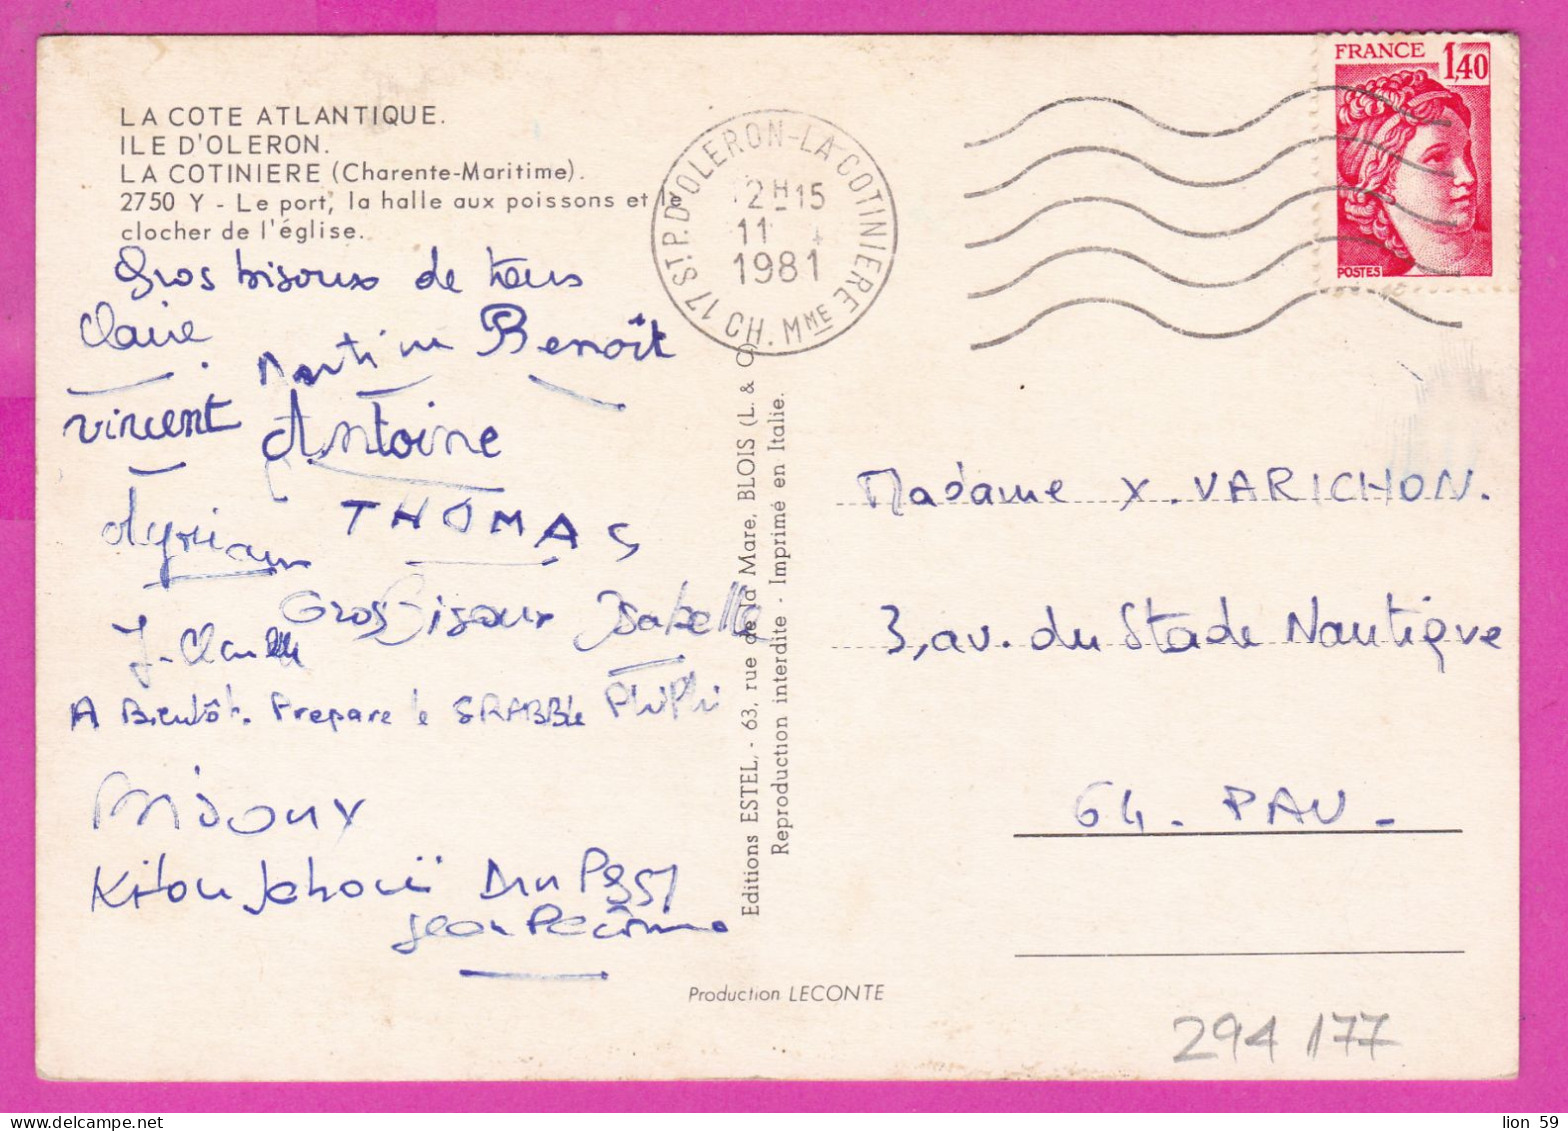 LA COTE ATLANTIQUE.
ILE D'OLERON.
LA COTINIERE (Charente-Maritime).
2750 Y - Le port, la halle aux poissons et le
clocher de l'église.
Gros bisoux de tous
Claire
Martine Benoît
vincent Antoine
Myriam THOMAS
Gros Bisoux Isabelle
J-Claude
A Bientôt. Prepare le SRABBle PhiPhi
Bisoux
Editions ESTEL, - 63, rue de la Mare, BLOIS (L. & C)
Reproduction interdite - Imprimé en Italie.
Production LECONTE
17 ST. P. D'OLERON-LA COTINIERE CH. MME
2H15
11
1981
FRANCE 1,40
POSTES
Madame X. VARICHON.
3, av. du Stade Nautique
64 - PAU -
294 177
lion 59